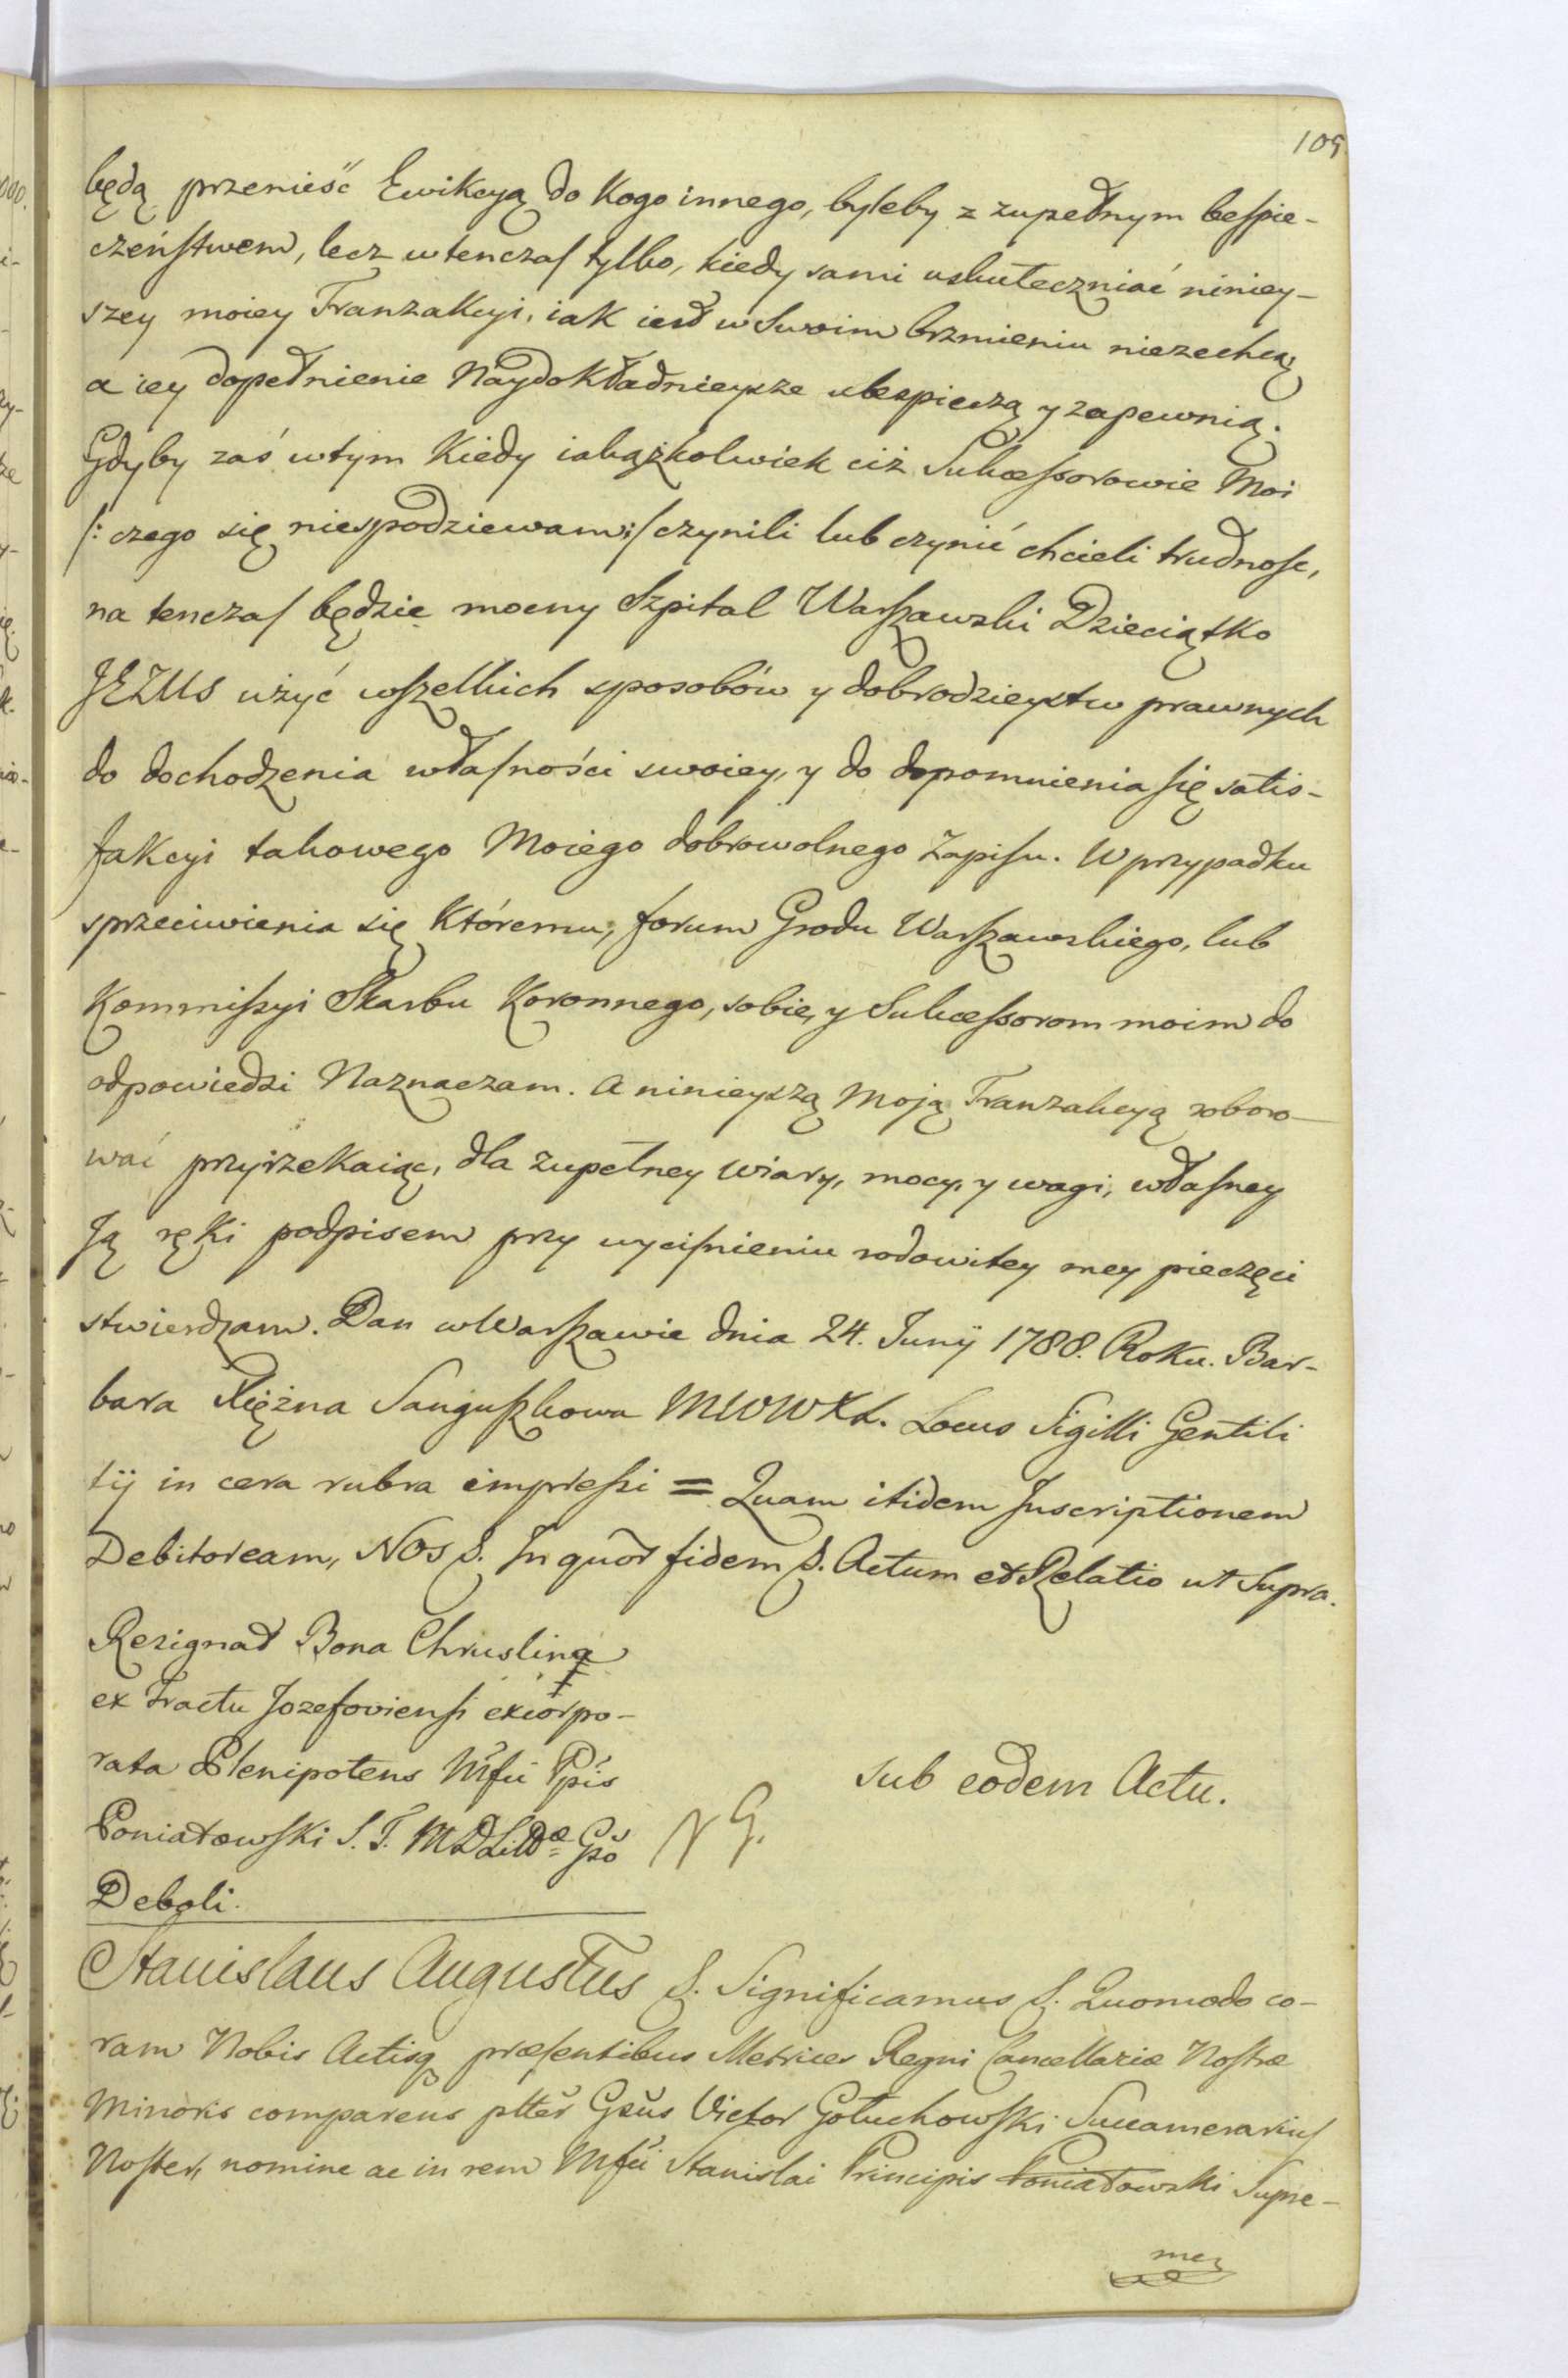 109
będą przenieść Ewikcyą do Kogo innego, byleby z zupełnym bespie-
czeństwem, lecz wtenczas tylko, kiedy sami uskuteczniać niniey-
szey moiey Tranzakcyi, iak iest w Swoim brzmieniu niezechcą
a iey dopełnienie Naydokładnieysze ubespieczą y zapewnią.
Gdyby zaś wtym Kiedy iakążkolwiek ciż Sukcessorowie Moi
/: czego się niespodziewam :/ czynili lub czynić chcieli trudnosc,
na tenczas będzie mocny Szpital Warszawski Dzieciątko
JEZUS użyć wszelkich sposobów y dobrodzieystw prawnych
do dochodzenia własności swoiey, y do dopomnienia się satis-
fakcyi takowego Moiego dobrowolnego Zapisu. W przypadku
sprzeciwienia się Któremu, forum Grodu Warszawskiego, lub
Kommissyi Skarbu Koronnego, sobie, y Sukcessorom moim do
odpowiedzi Naznaczam. A ninieyszą Moją Tranzakcyą roboro-
wać przyrzekaiąc, dla zupełney Wiary, mocy, y wagi, własney
Ją ręki podpisem przy wyciśnieniu rodowitey mey pieczęci
stwierdzam. Dan w Warszawie dnia 24. Junÿ 1788. Roku. Bar-
bara Xiężna Sanguszkowa MWWXL. Locus Sigilli Gentili
tÿ in cera rubra impressi = Quam itidem Inscriptionem
Debitoream, NOS &. In quor fidem &. Actum et Relatio ut Supra.
Rezignat Bona Chruslina
ex Tractu Jozefoviensi excorpo-
rata Plenipotens Mfci Ppis
Poniatowski S. T. M D Litt Gso
Deboli.
NG.
sub eodem Actu.
Stanislaus Augustus &. Significamus &. Quomodo co-
ram Nobis Actisq præsentibus Metrices Regni Cancellariæ Nostræ
Minoris comparens plter Gsus Victor Gołuchowski Succamerarius
Noster, nomine ac in rem Mfci Stanislai Principis Poniatowski Supre-
me